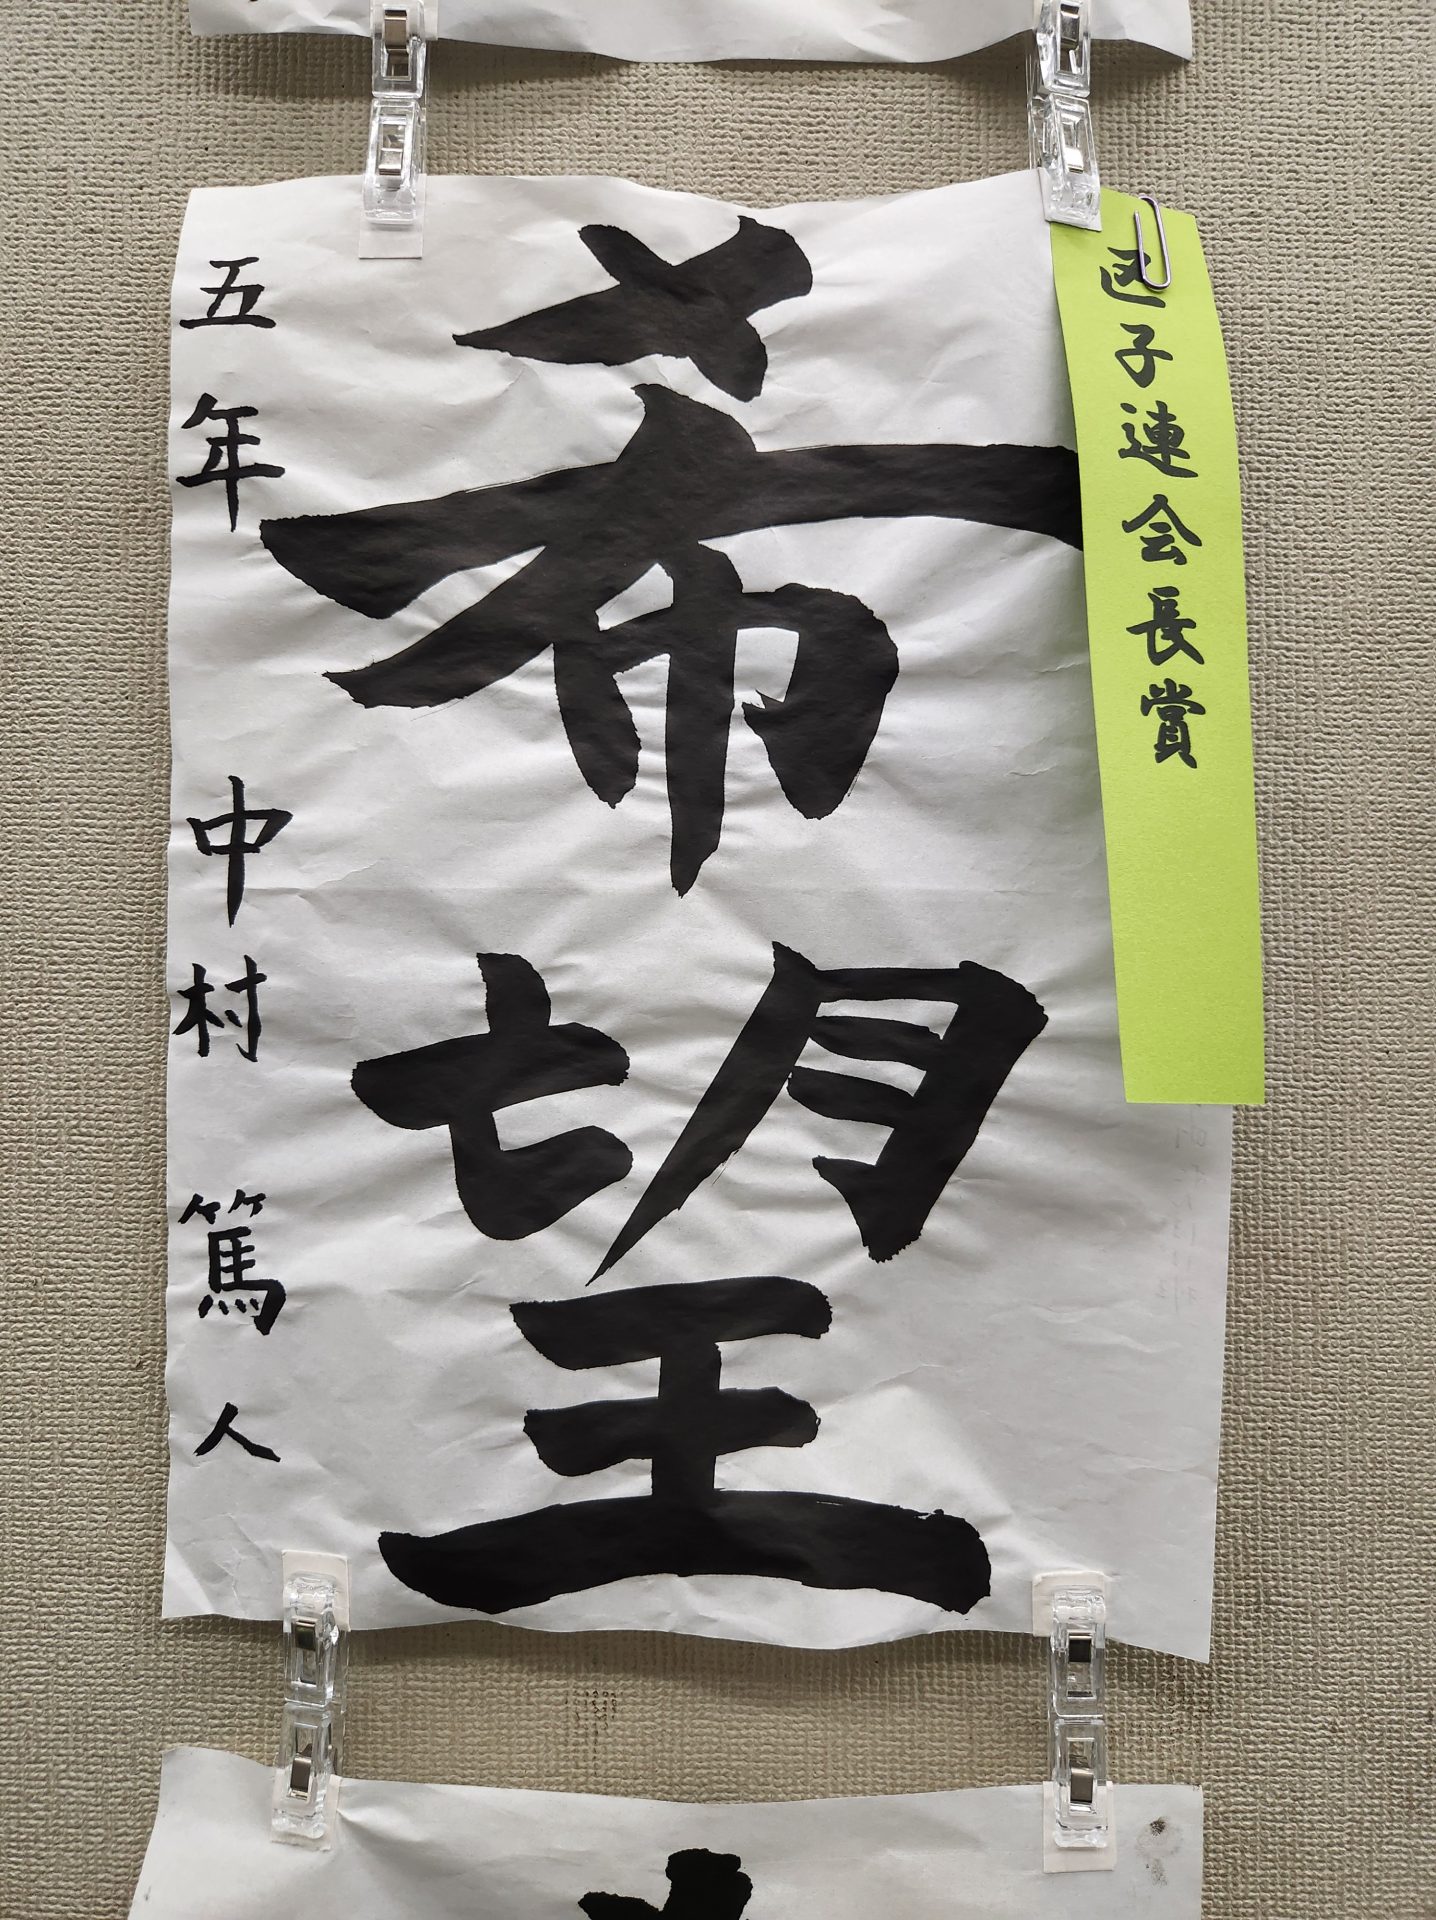 区子連会長賞
希望
五年 中村篤人